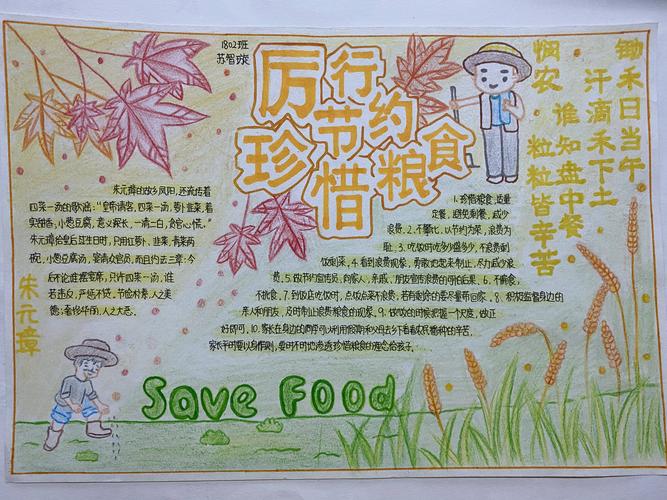 1802班
苏智璇
厉行
节约
珍惜粮食
悯农
锄禾日当午
汗滴禾下土
谁知盘中餐
粒粒皆辛苦
朱元璋的故乡凤阳，还流传着
四菜一汤的歌谣："皇帝请客，四菜一汤，萝卜韭菜，着
实甜香，小葱豆腐，意义深长，一清二白，贪官心慌。"
朱元璋给皇后过生日时，只用红萝卜、韭菜，青菜两
碗，小葱豆腐汤，宴请众官员，而且约法三章：今
后不论谁摆宴席，只许四菜一汤，谁
若违反，严惩不贷。节俭朴素，人之美
德；奢侈华丽，人之大恶。
朱元璋
1.珍惜粮食，适量
定餐，避免剩餐，减少
浪费。2.不攀比，以节约为荣，浪费为
耻。3.吃饭时吃多少盛多少，不浪费剩
饭剩菜。4.看到浪费现象，勇敢地起来制止，尽力减少浪
费。5.做节约宣传员，向家人，亲戚，朋友宣传浪费的可怕后果。6.不偏食，
不挑食。7.到饭店吃饭时，点饭点菜不浪费，若有剩余的要尽量带回家。8.积极监督身边的
亲人和朋友，及时制止浪费粮食的现象。9.做饭的时候把握一个尺度，做正
好即可。10.家长在身边的时候可以利用假期和父母去乡下看看农民播种的辛苦，
家长平时要以身作则，要时不时地渗透珍惜粮食的理念给孩子。
Save Food